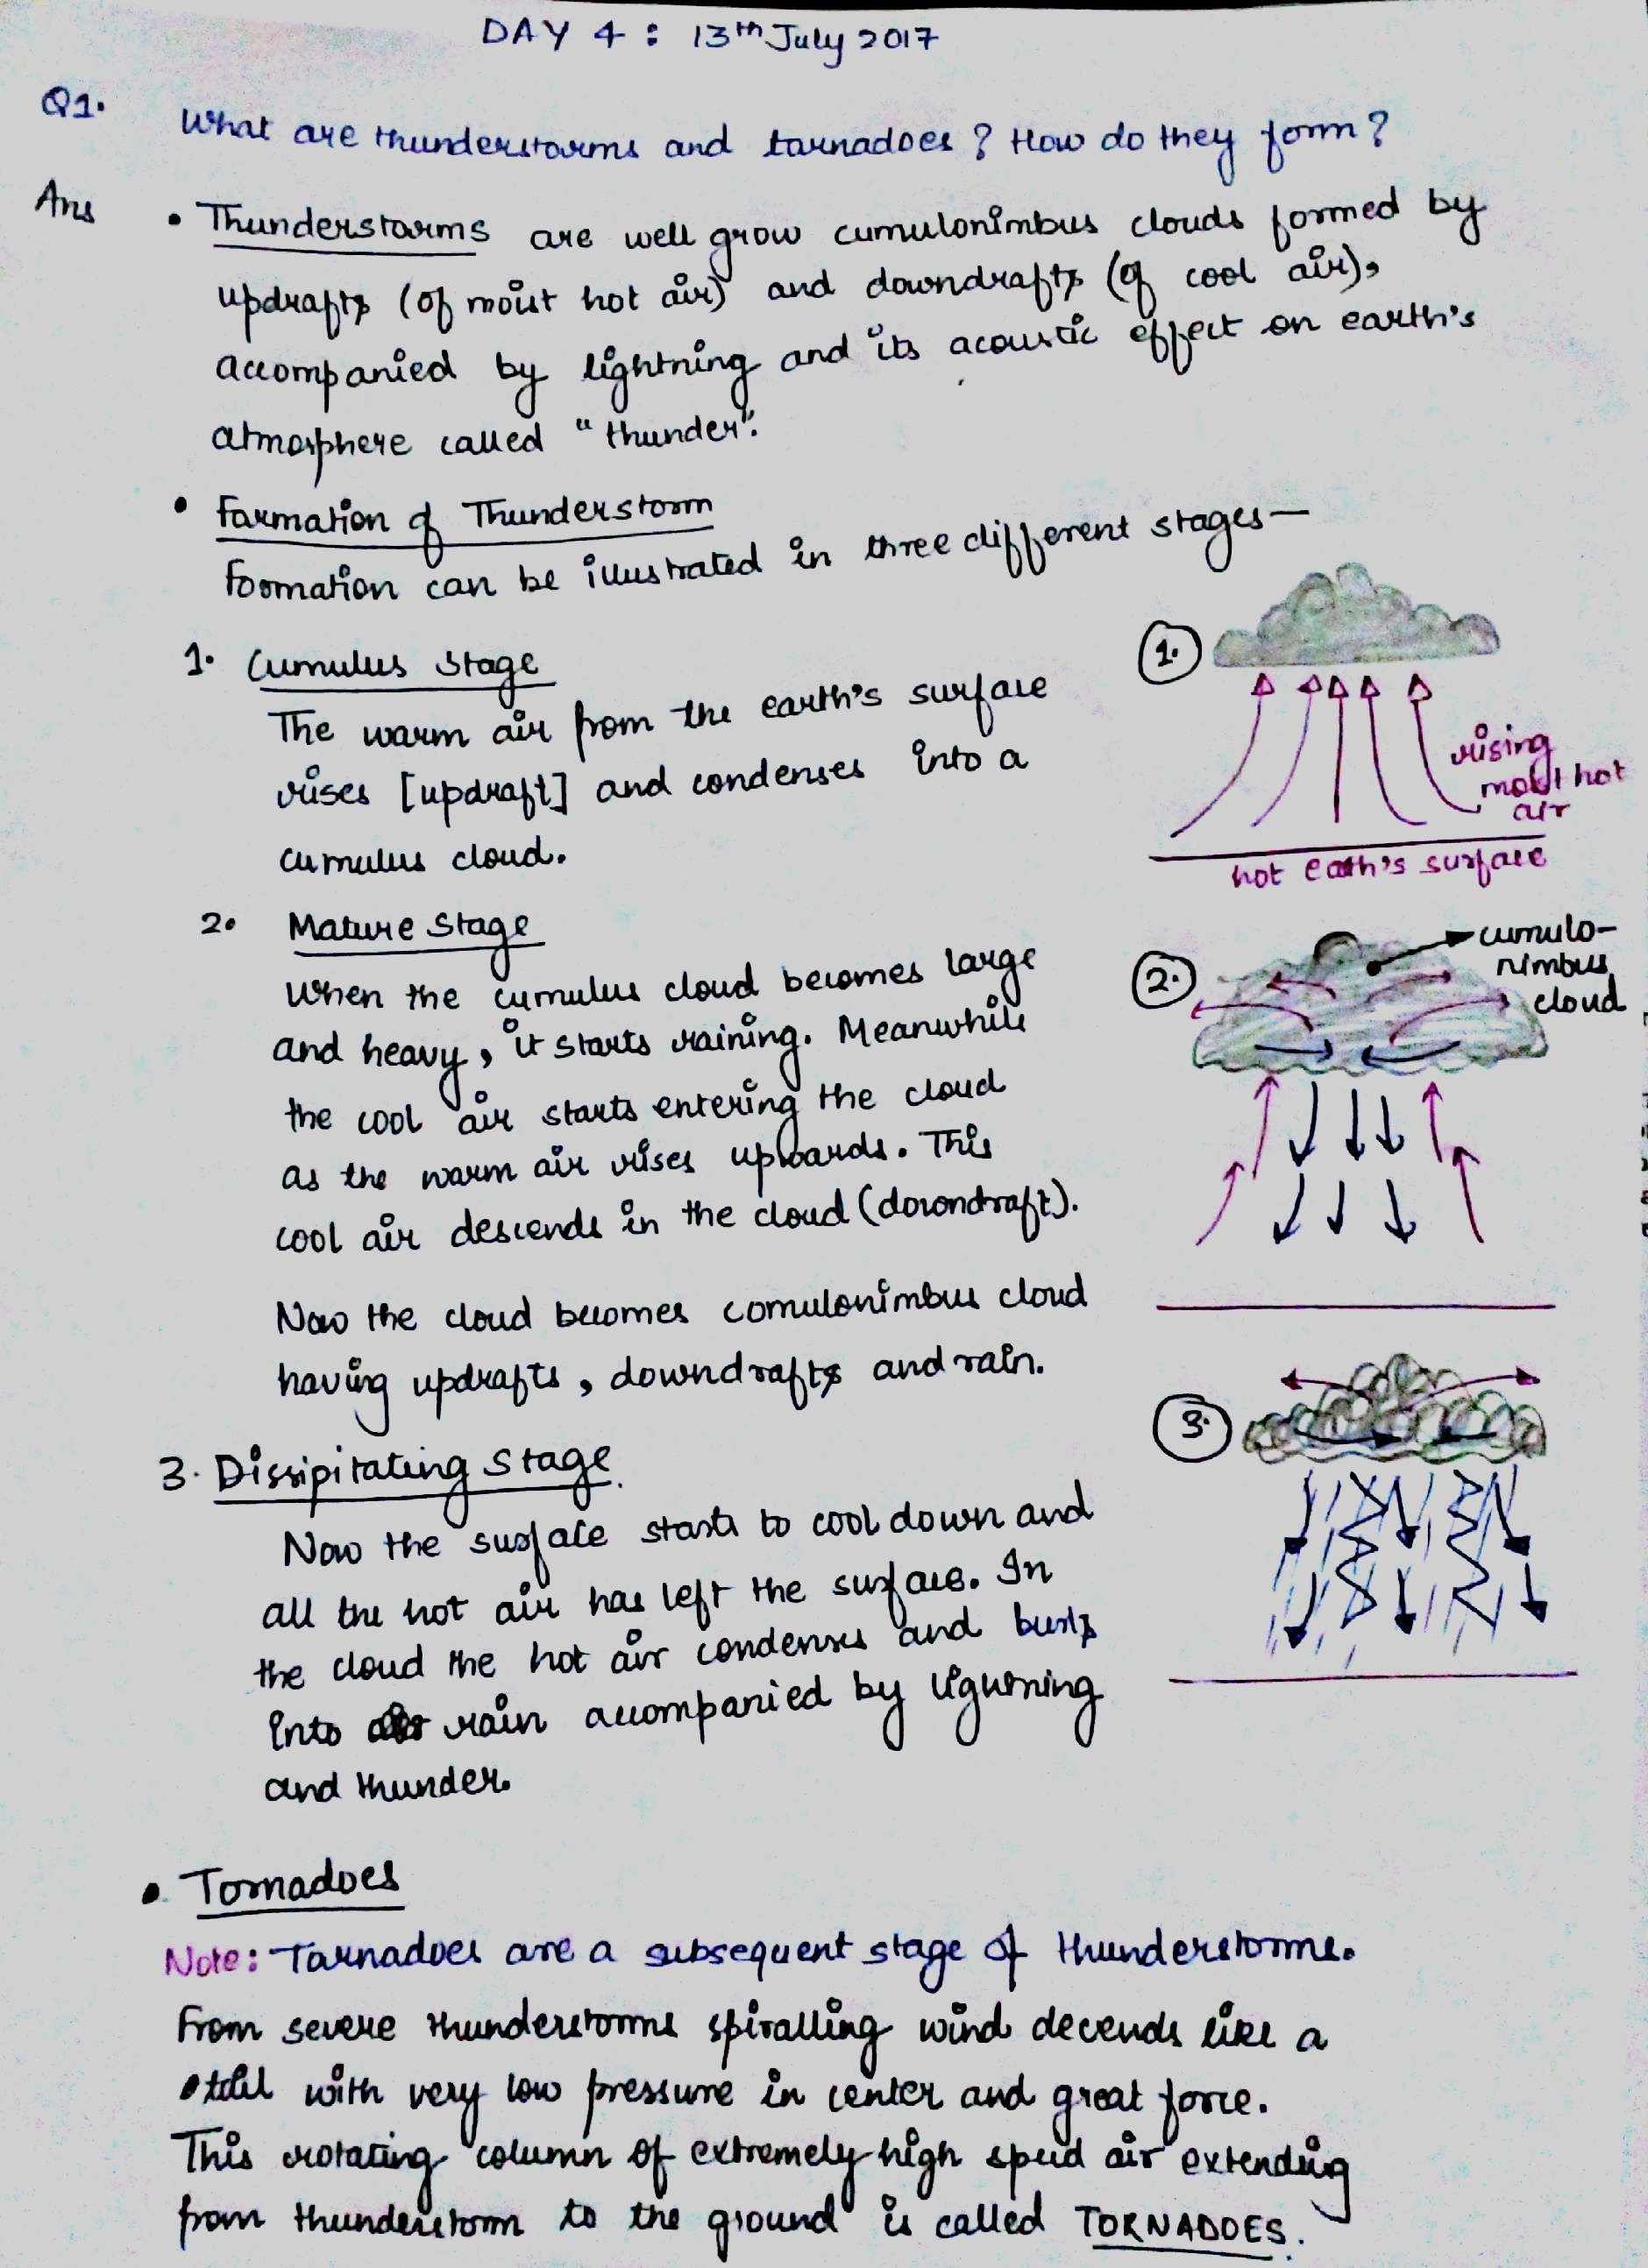 DAY 4 : 13th July 2017
Q1. What are thunderstorms and tarnadoes ? How do they form ?
Ans • Thunderstorms are well grow cumulonimbus clouds formed by
updrafts (of moist hot air) and downdrafts (of cool air),
accompanied by lightning and its acoustic effect on earth's
atmosphere called "thunder".
• Formation of Thunderstorm
Formation can be illustrated in three different stages —
1. Cumulus Stage
The warm air from the earth's surface
rises [updraft] and condenses into a
cumulus cloud.
1.
rising
moist hot
air
hot earth's surface
2. Mature Stage
When the cumulus cloud becomes large
and heavy, it starts raining. Meanwhile
the cool air starts entering the cloud
as the warm air rises upwards. This
cool air descends in the cloud (downdraft).
Now the cloud becomes comulonimbus cloud
having updrafts, downdrafts and rain.
2.
cumulo-
nimbus
cloud
3. Dissipitating Stage
Now the surface starts to cool down and
all the hot air has left the surface. In
the cloud the hot air condenses and bursts
into rain accompanied by lightning
and thunder.
3.
• Tornadoes
Note: Tarnadoes are a subsequent stage of thunderstorms.
From severe thunderstorms spiralling wind decends like a
tail with very low pressure in center and great force.
This rotating column of extremely high speed air extending
from thunderstorm to the ground is called TORNADOES.